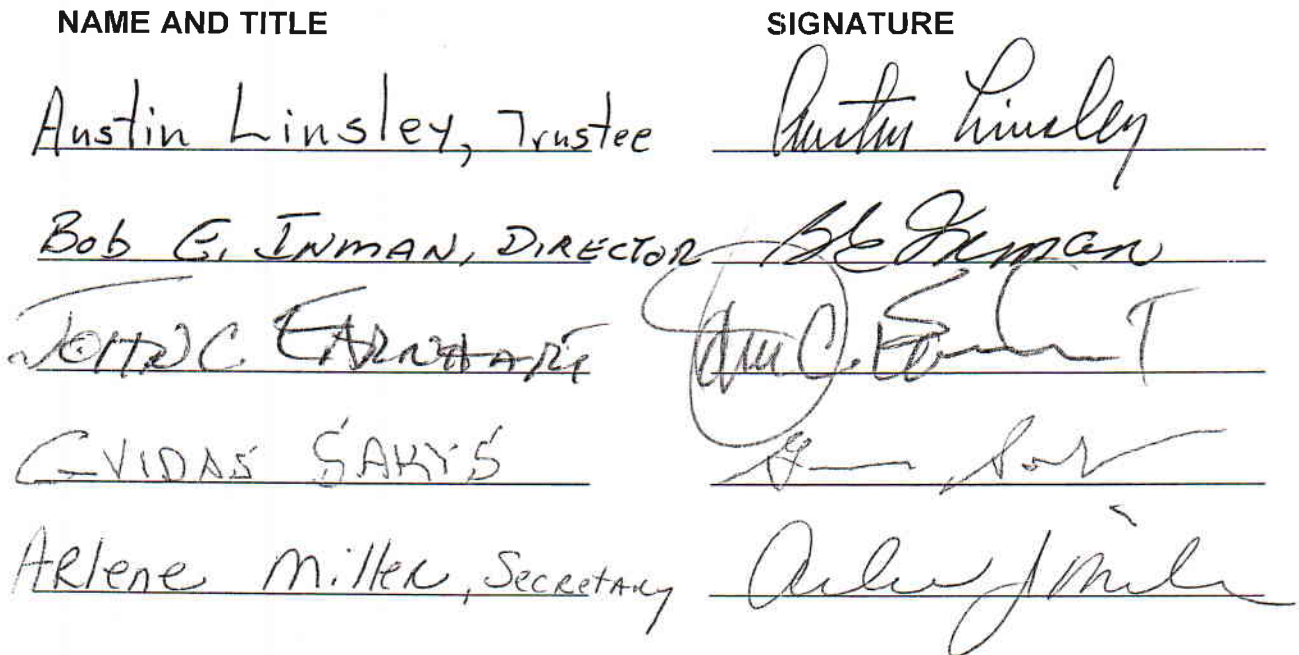 NAME AND TITLE SIGNATURE
Austin Linsley, Trustee Austin Linsley
Bob E. INMAN, DIRECTOR BE Inman
JOHN C. EARNHART John C.
GVIDAS SAKYS
ARlene Miller, Secretary Arlene J Miller